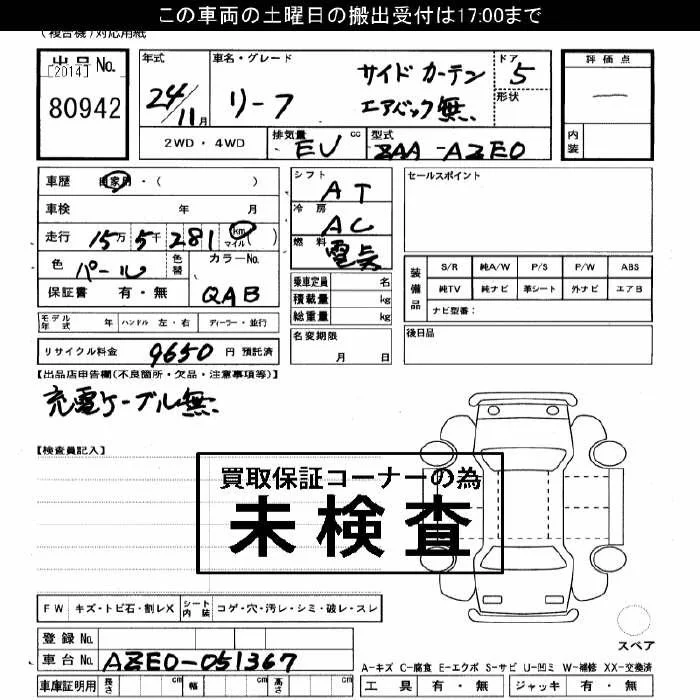 この車両の土曜日の搬出受付は17:00まで
(複合機)対応用紙
出品No.
[2014]
80942
年式
24/11月
車名・グレード
リーフ
サイド カーテン
エアバック無
ドア
5
形状
評価点
—
内装
2WD・4WD
排気量
EV
cc
型式
ZAA-AZE0
車歴 自家用・( )
車検 年 月
走行 15万5千281 km マイル( )
色 パール
色替
カラーNo.
QAB
保証書 有・無
モデル年式 年 ハンドル 左・右 ディーラー・並行
リサイクル料金 9650 円 預託済
シフト
AT
冷房
AC
燃料
電気
乗車定員 名
積載量 kg
総重量 kg
名変期限
月 日
セールスポイント
装備品
S/R 純A/W P/S P/W ABS
純TV 純ナビ 革シート 外ナビ エアB
ナビ型番:
後日品
【出品店申告欄(不良箇所・欠品・注意事項等)】
充電ケーブル無
【検査員記入】
買取保証コーナーの為
未検査
FW キズ・トビ石・割レX シート内装 コゲ・穴・汚レ・シミ・破レ・スレ
登録No.
車台No. AZE0-051367
車庫証明用 長さ cm 幅 cm 高さ cm
スペア
A-キズ C-腐食 E-エクボ S-サビ U-凹ミ W-補修 XX-交換済
工具 有・無 ジャッキ 有・無